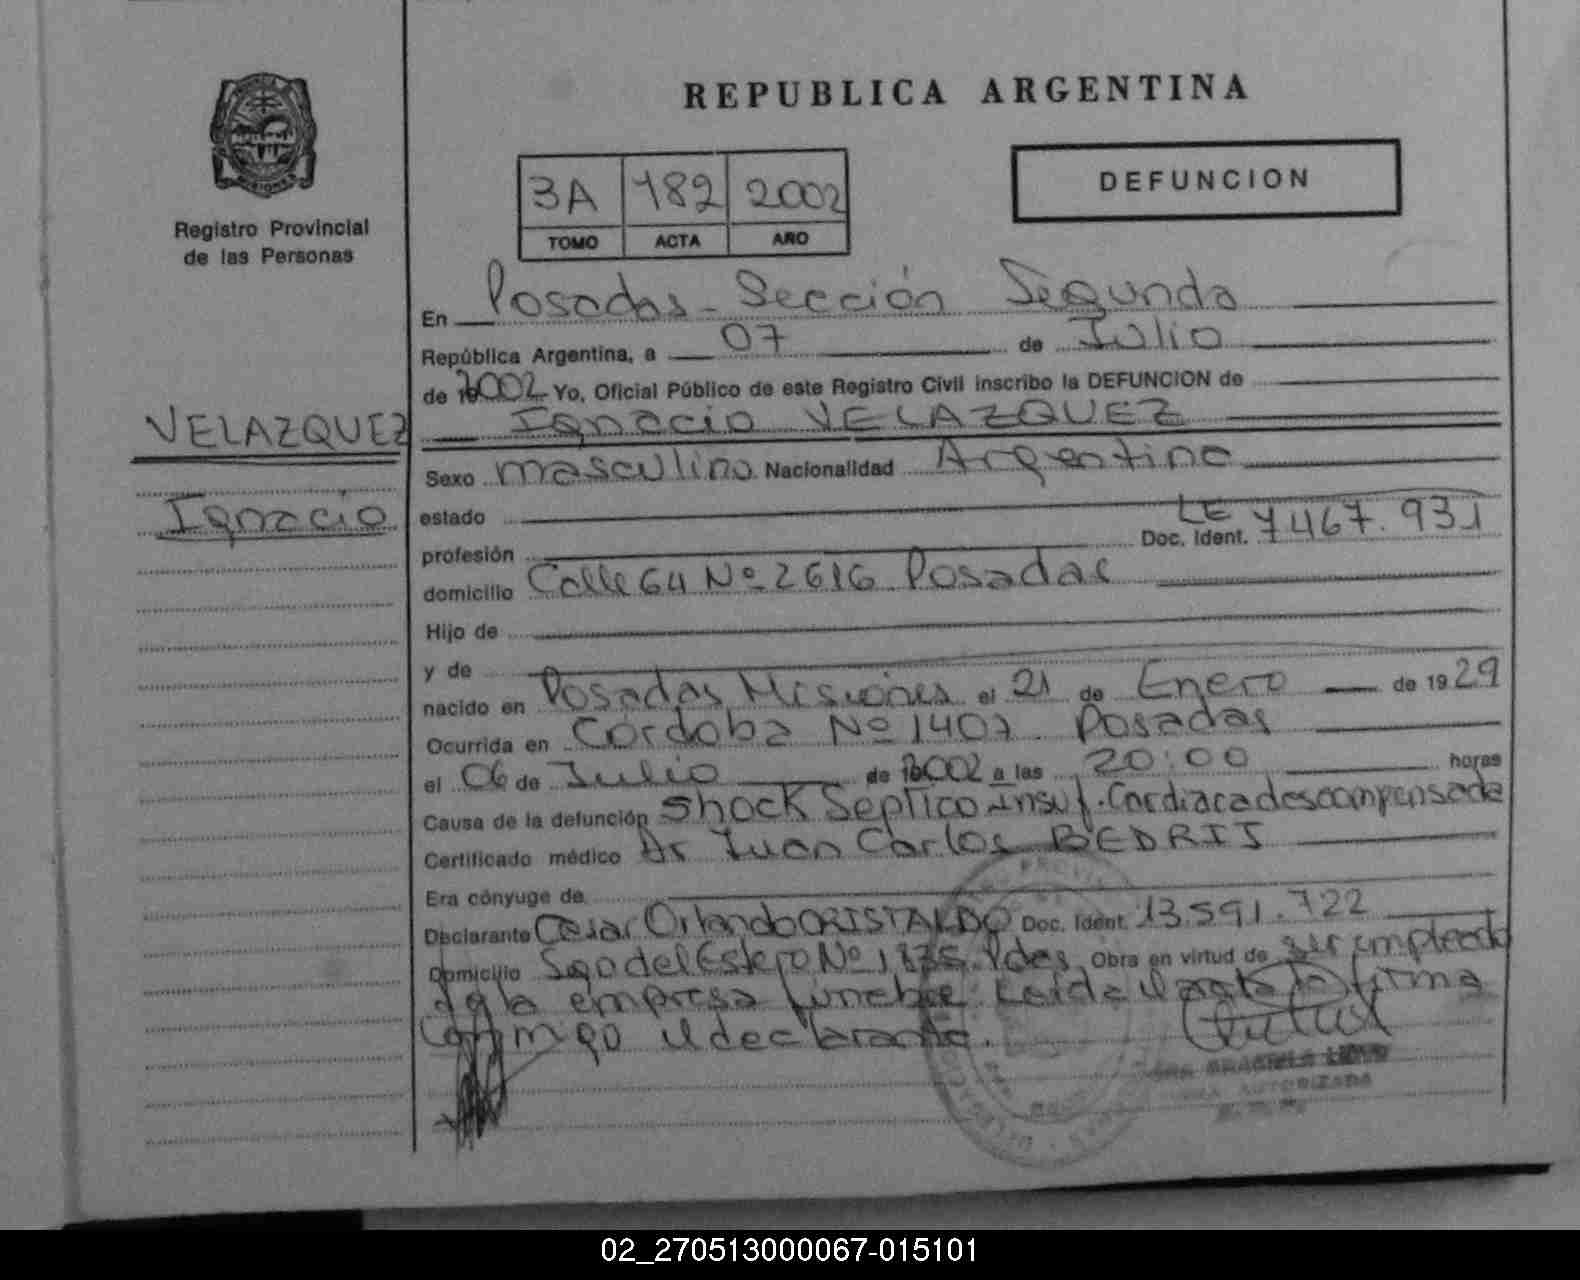 REPUBLICA ARGENTINA
Registro Provincial
de las Personas
3A 182 2002
TOMO ACTA AÑO
DEFUNCION
VELAZQUEZ
Ignacio
En Posadas - Sección Segunda
República Argentina, a 07 de Julio
de 2002 Yo, Oficial Público de este Registro Civil inscribo la DEFUNCION de
Ignacio VELAZQUEZ
Sexo masculino Nacionalidad Argentino
estado
profesión Doc. Ident. LE 7467.931
domicilio Calle 64 Nº 2616 Posadas
Hijo de
y de
nacido en Posadas Misiones el 21 de Enero de 1929
Ocurrida en Córdoba Nº 1407. Posadas
el 06 de Julio de 2002 a las 20:00 horas
Causa de la defunción Shock Septico Insuf. Cardiaca descompensada
Certificado médico Dr Juan Carlos BEDRIJ
Era cónyuge de
Declarante Cesar Orlando CRISTALDO Doc. Ident. 13.591.722
Domicilio Sgo del Estero Nº Pdas. Obra en virtud de ser empleado
de la empresa fúnebre. Leida el acta la firma
conmigo el declarante.
AUTORIZADA
02_270513000067-015101